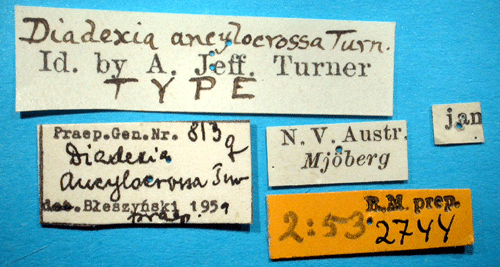 Diadexia ancylocrossa Turn.
Id. by A. Jeff. Turner
TYPE
Praep.Gen.Nr. 813 ♀
Diadexia
ancylocrossa Tur
det. Błeszyński 1959
praep.
N. V. Austr.
Mjöberg
jan
R.M. prep.
2:53 2744